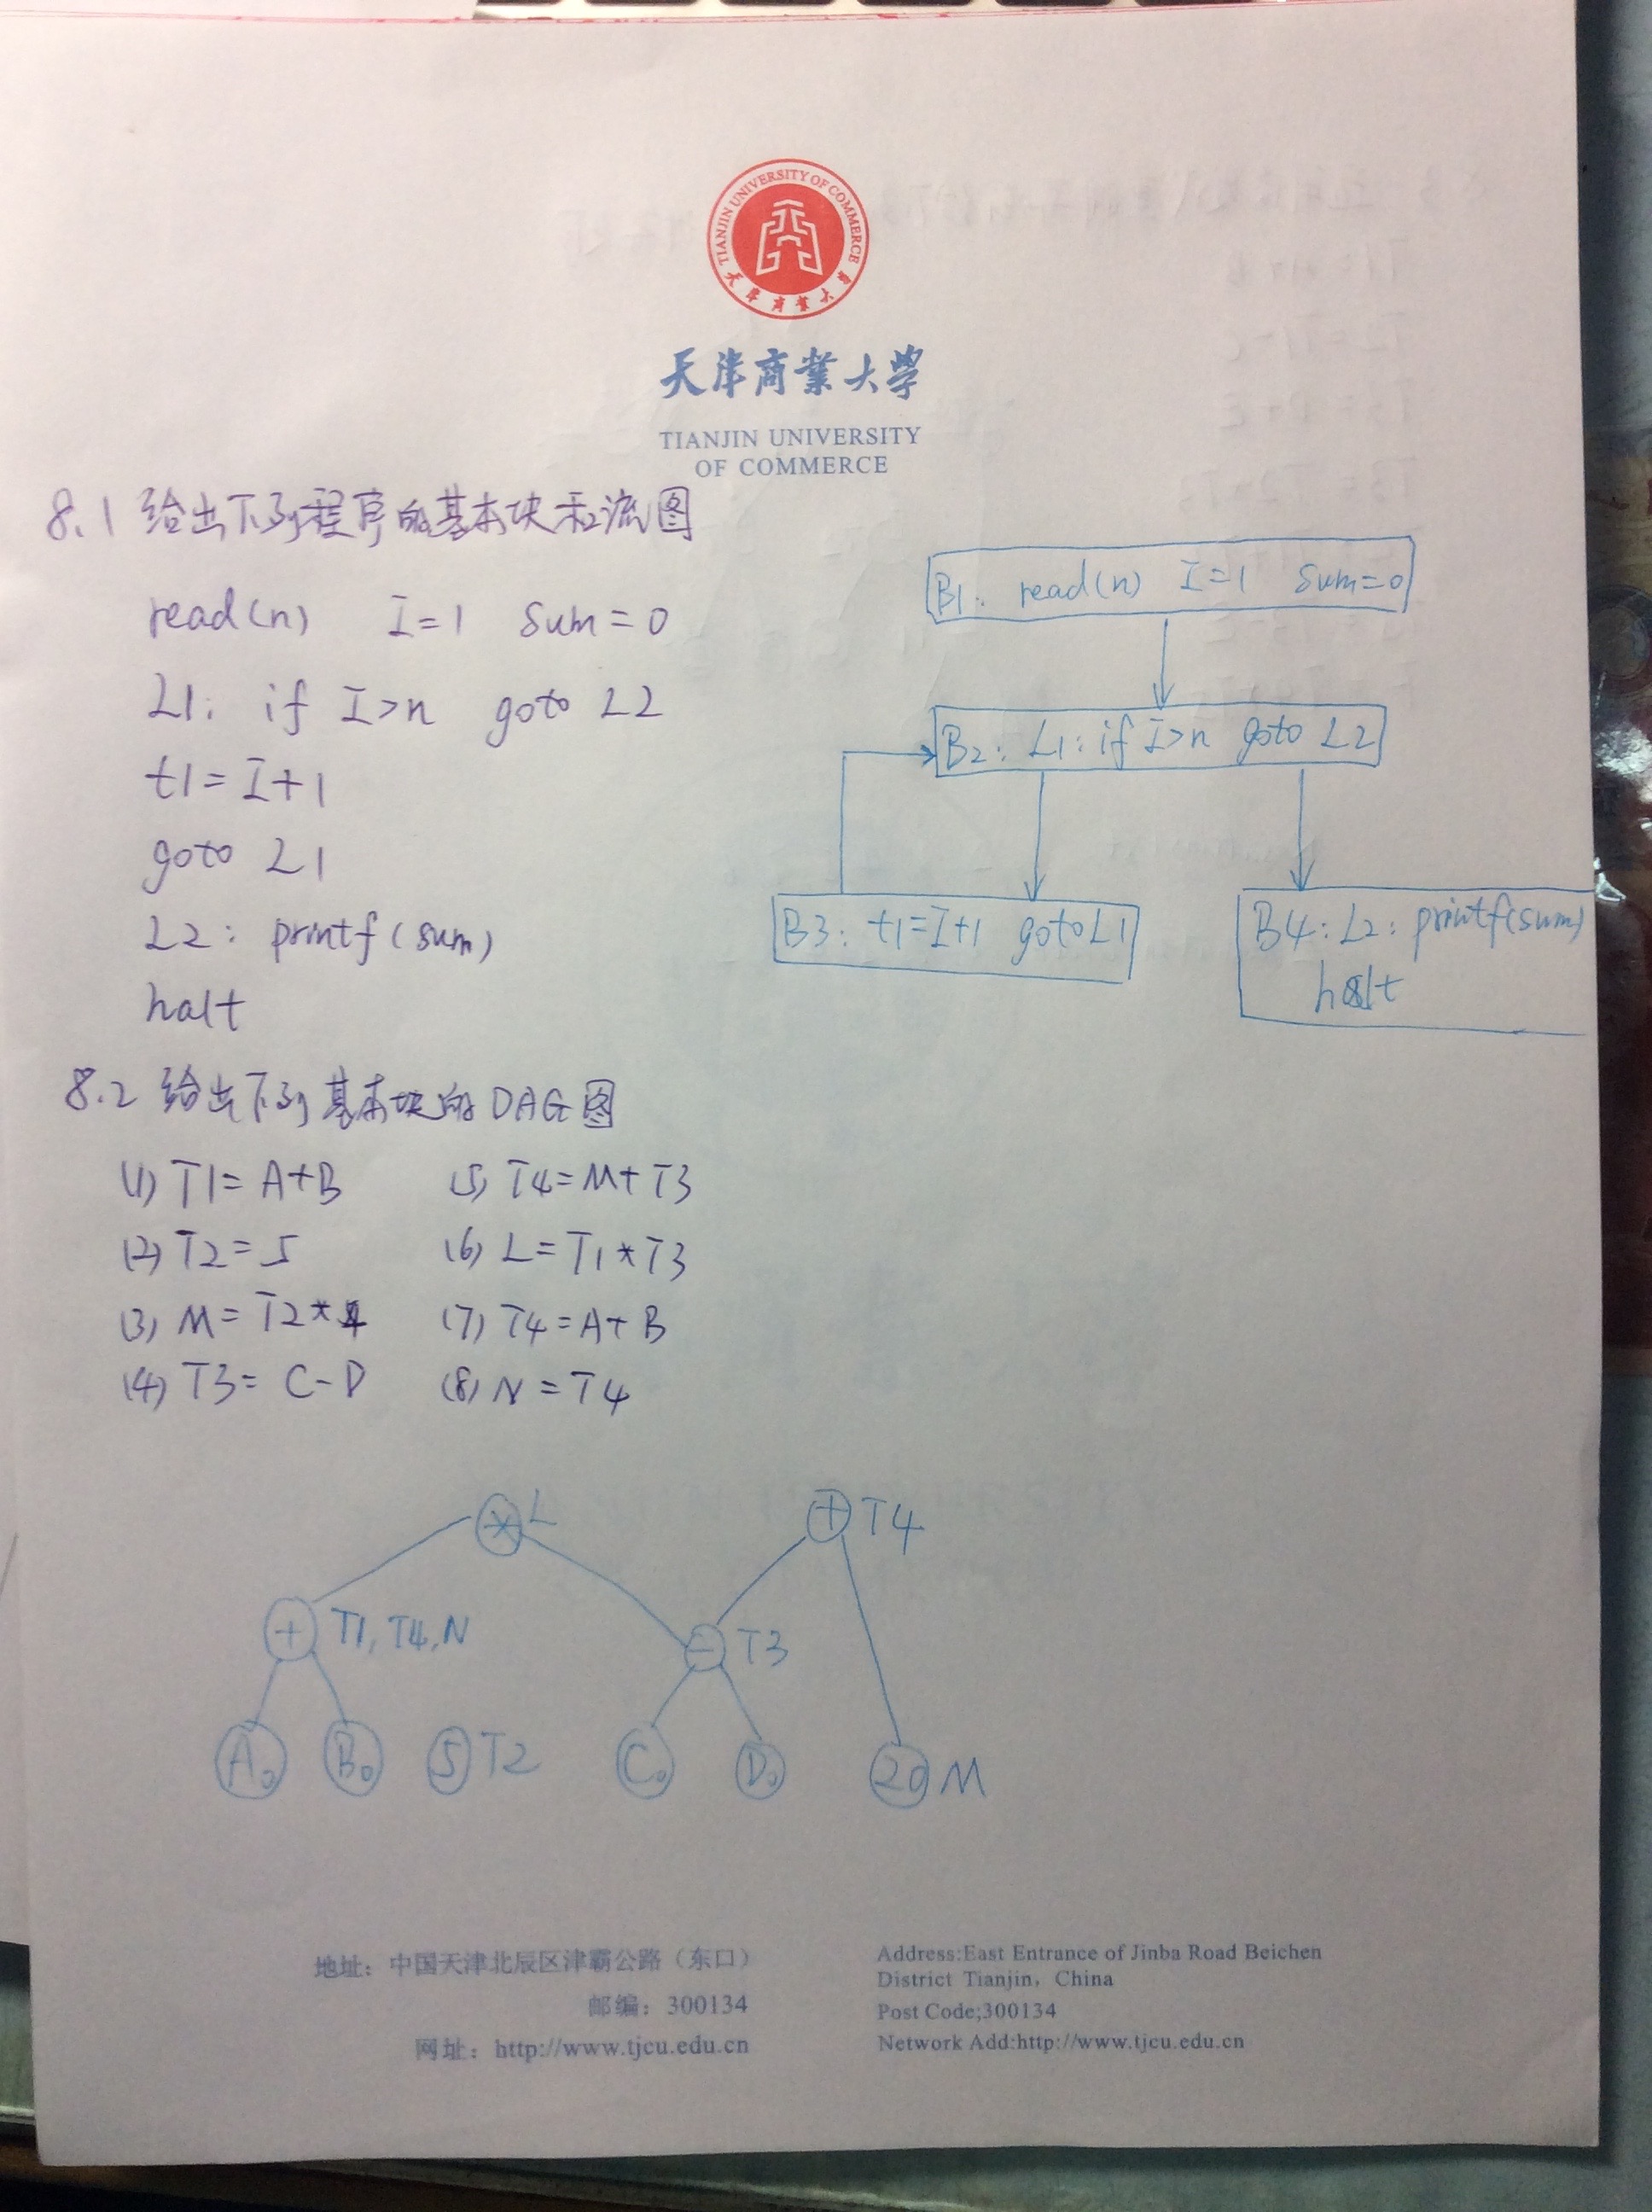 TIANJIN UNIVERSITY OF COMMERCE
天津商業大學
天津商業大學
TIANJIN UNIVERSITY
OF COMMERCE
8.1 给出下列程序的基本块和流图
read(n) I=1 sum=0
L1: if I>n goto L2
t1=I+1
goto L1
L2: printf(sum)
halt
B1: read(n) I=1 sum=0
B2: L1: if I>n goto L2
B3: t1=I+1 goto L1
B4: L2: printf(sum)
halt
8.2 给出下列基本块的DAG图
(1) T1=A+B
(2) T2=5
(3) M=T2*4
(4) T3=C-D
(5) T4=M+T3
(6) L=T1*T3
(7) T4=A+B
(8) N=T4
* L + T4
+ T1, T4, N - T3
A0 B0 5 T2 C0 D0 20 M
地址：中国天津北辰区津霸公路（东口）
邮编：300134
网址：http://www.tjcu.edu.cn
Address:East Entrance of Jinba Road Beichen
District Tianjin, China
Post Code;300134
Network Add:http://www.tjcu.edu.cn